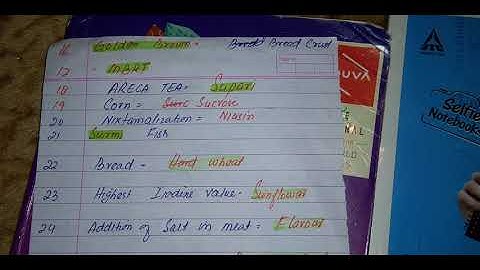 16 Golden Brown - Bread Bread Crust
17 - MBRT
18 ARECA TEA = Supari
19 Corn = Suc Sucrose
20 Nixtamalization = Niasin
21 Surmi Fish
22 Bread - Hard wheat
23 Highest Iodine Value - Sunflower
24 Addition of Salt in meat = Flavour
NUVY
ITC
Selfie
Notebooks